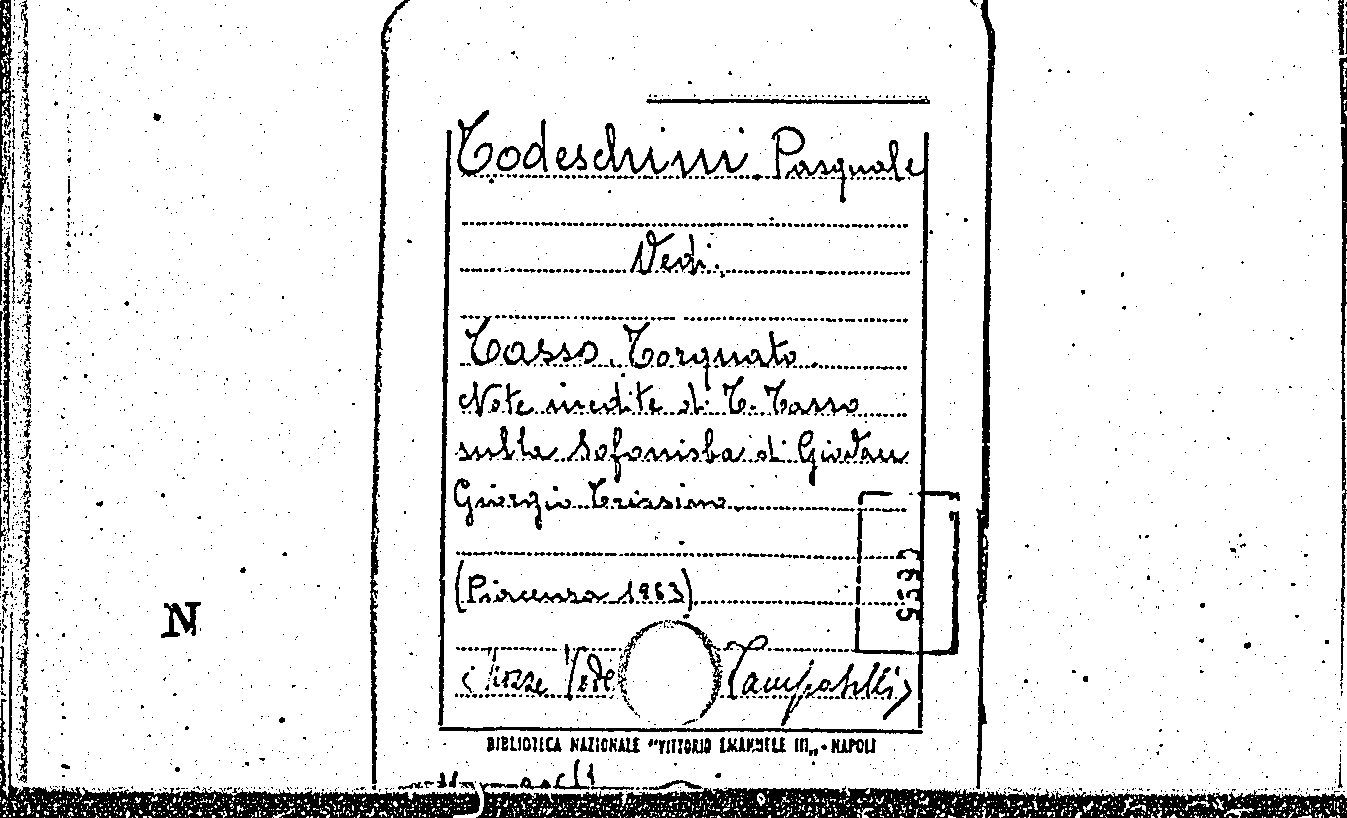 Todeschini. Pasquale
Vedi:
Tasso. Torquato.
Note inedite di T. Tasso
sulla Sofonisba di Giovan
Giorgio Trissino.
(Piacenza 1963)
(Nozze Vede Campatelli)
BIBLIOTECA NAZIONALE "VITTORIO EMANUELE III„ - NAPOLI
N